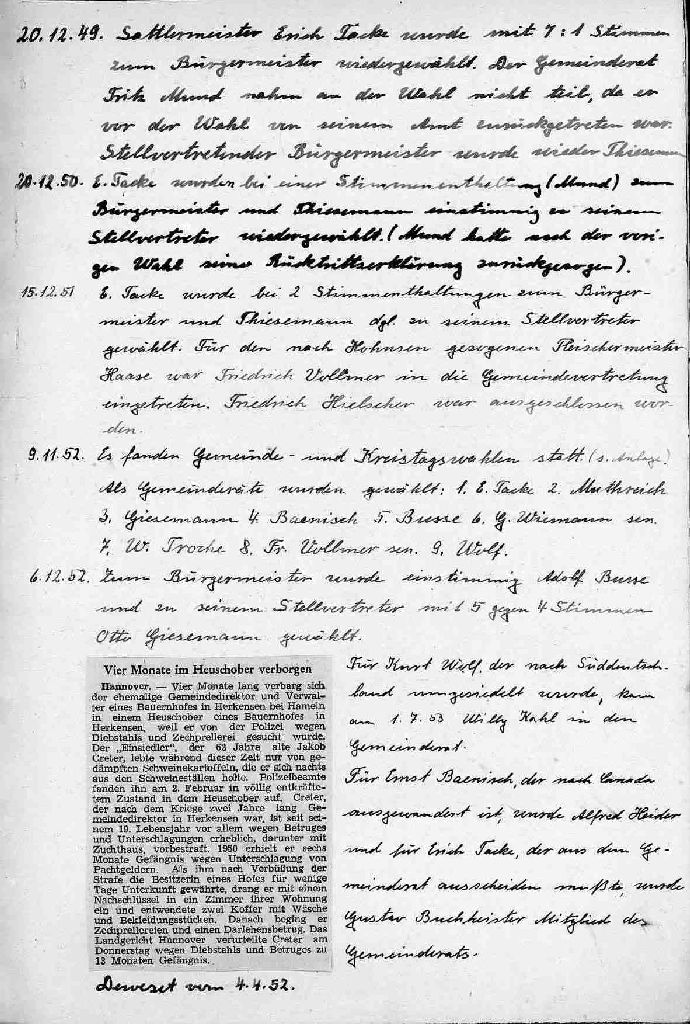 20.12.49. Sattlermeister Erich Tacke wurde mit 7:1 Stimmen
zum Bürgermeister wiedergewählt. Der Gemeinderat
Fritz Mund nahm an der Wahl nicht teil, da er
vor der Wahl von seinem Amt zurückgetreten war.
Stellvertretender Bürgermeister wurde wieder Thiesemann
20.12.50. E. Tacke wurden bei einer Stimmenenthaltung (Mund) zum
Bürgermeister und Thiesemann einstimmig zu seinem
Stellvertreter wiedergewählt. (Mund hatte nach der vori-
gen Wahl seine Rücktrittserklärung zurückgezogen).
15.12.51 E. Tacke wurde bei 2 Stimmenthaltungen zum Bürger-
meister und Thiesemann dgl. zu seinem Stellvertreter
gewählt. Für den nach Hohnsen gezogenen Fleischermeister
Haase war Friedrich Vollmer in die Gemeindevertretung
eingetreten. Friedrich Hielscher war ausgeschlossen wor-
den.
9.11.52. Es fanden Gemeinde- und Kreistagswahlen statt. (s. Anlage)
Als Gemeinderäte wurden gewählt: 1. E. Tacke 2. Muthreich
3. Giesemann 4. Baenisch 5. Busse 6. G. Wiemann sen.
7. W. Troche 8. Fr. Vollmer sen. 9. Wolf.
6.12.52. Zum Bürgermeister wurde einstimmig Adolf Busse
und zu seinem Stellvertreter mit 5 gegen 4 Stimmen
Otto Giesemann gewählt.
Vier Monate im Heuschober verborgen
Hannover. — Vier Monate lang verbarg sich
der ehemalige Gemeindedirektor und Verwal-
ter eines Bauernhofes in Herkensen bei Hameln
in einem Heuschober eines Bauernhofes in
Herkensen, weil er von der Polizei wegen
Diebstahls und Zechprellerei gesucht wurde.
Der „Einsiedler“, der 63 Jahre alte Jakob
Creter, lebte während dieser Zeit nur von ge-
dämpften Schweinekartoffeln, die er sich nachts
aus den Schweineställen holte. Polizeibeamte
fanden ihn am 2. Februar in völlig entkräfte-
tem Zustand in dem Heuschober auf. Creter,
der nach dem Kriege zwei Jahre lang Ge-
meindedirektor in Herkensen war, ist seit sei-
nem 19. Lebensjahr vor allem wegen Betruges
und Unterschlagungen erheblich, darunter mit
Zuchthaus, vorbestraft. 1950 erhielt er sechs
Monate Gefängnis wegen Unterschlagung von
Pachtgeldern. Als ihm nach Verbüßung der
Strafe die Besitzerin eines Hofes für wenige
Tage Unterkunft gewährte, drang er mit einem
Nachschlüssel in ein Zimmer ihrer Wohnung
ein und entwendete zwei Koffer mit Wäsche
und Bekleidungsstücken. Danach beging er
Zechprellereien und einen Darlehensbetrug. Das
Landgericht Hannover verurteilte Creter am
Donnerstag wegen Diebstahls und Betruges zu
13 Monaten Gefängnis.
Dewezet vom 4.4.52.
Für Kurt Wolf, der nach Süddeutsch-
land umgesiedelt wurde, kam
am 1.7.53 Willy Kahl in den
Gemeinderat.
Für Ernst Baenisch, der nach Canada
ausgewandert ist, wurde Alfred Heider
und für Erich Tacke, der aus dem Ge-
meinderat ausscheiden mußte, wurde
Gustav Buchheister Mitglied des
Gemeinderats.